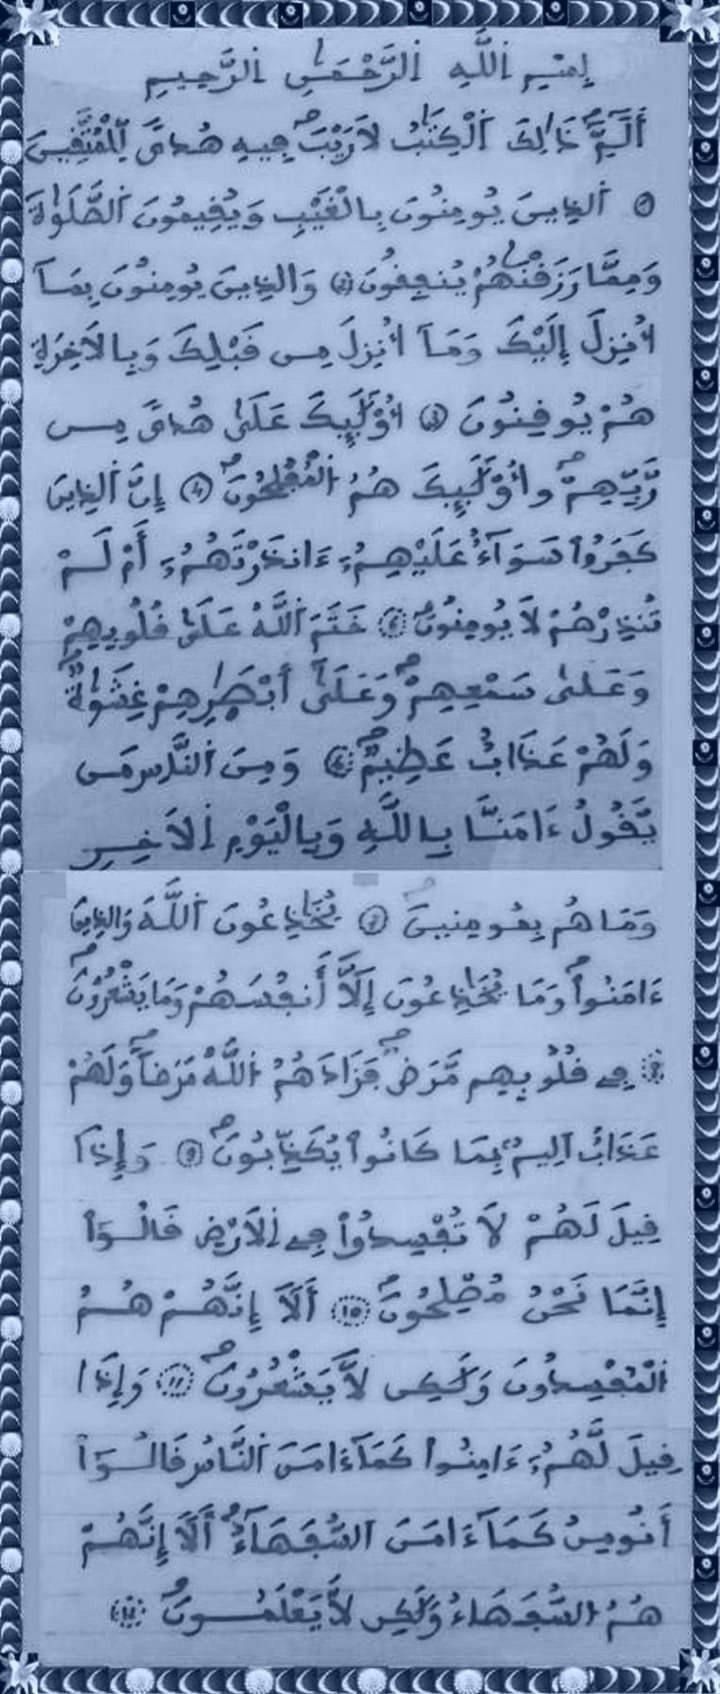 بِسْمِ اللَّهِ الرَّحْمَٰنِ الرَّحِيمِ
أَلَٓمِّٓۖ ذَٰلِكَ اَلْكِتَٰبُ لَا رَيْبَۖ فِيهِ هُدىً لِّلْمُتَّقِينَ
١ اَلذِينَ يُومِنُونَ بِالْغَيْبِ وَيُقِيمُونَ اَلصَّلَوٰةَ
وَمِمَّا رَزَقْنَٰهُمْ يُنفِقُونَ ٢ وَالذِينَ يُومِنُونَ بِمَآ
أُنزِلَ إِلَيْكَ وَمَآ أُنزِلَ مِن قَبْلِكَ وَبِالَاخِرَةِ
هُمْ يُوقِنُونَ ٣ أُوْلَٰٓئِكَ عَلَىٰ هُدىً مِّن
رَّبِّهِمْۖ وَأُوْلَٰٓئِكَ هُمُ اُلْمُفْلِحُونَۖ ٤ إِنَّ اَلذِينَ
كَفَرُواْ سَوَآءٌ عَلَيْهِمُۥٓ ءَٰانذَرْتَهُمُۥٓ أَمْ لَمْ
تُنذِرْهُمْ لَا يُومِنُونَۖ ٥ خَتَمَ اَللَّهُ عَلَىٰ قُلُوبِهِمْ
وَعَلَىٰ سَمْعِهِمْۖ وَعَلَىٰٓ أَبْصَٰرِهِمْ غِشَٰوَةٌۖ
وَلَهُمْ عَذَابٌ عَظِيمٌۖ ٦ وَمِنَ اَلنَّاسِ مَن
يَّقُولُ ءَامَنَّا بِاللَّهِ وَبِالْيَوْمِ اِلَاخِرِ
وَمَا هُم بِمُومِنِينَۖ ٧ يُخَٰدِعُونَ اَللَّهَ وَالذِينَ
ءَامَنُواْۖ وَمَا يُخَٰدِعُونَ إِلَّآ أَنفُسَهُمْ وَمَا يَشْعُرُونَۖ
٨ فِے قُلُوبِهِم مَّرَضٌۖ فَزَادَهُمُ اُللَّهُ مَرَضاًۖ وَلَهُمْ
عَذَابٌ اَلِيمٌۢ بِمَا كَانُواْ يُكَذِّبُونَۖ ٩ وَإِذَا
قِيلَ لَهُمْ لَا تُفْسِدُواْ فِے اِلَارْضِ قَالُوٓاْ
إِنَّمَا نَحْنُ مُصْلِحُونَۖ ١٠ أَلَآ إِنَّهُمْ هُمُ
اُلْمُفْسِدُونَ وَلَٰكِن لَّا يَشْعُرُونَۖ ١١ وَإِذَا
قِيلَ لَهُمُۥٓ ءَامِنُواْ كَمَآ ءَامَنَ اَلنَّاسُ قَالُوٓاْ
أَنُومِنُ كَمَآ ءَامَنَ اَلسُّفَهَآءُۖ أَلَآ إِنَّهُمْ
هُمُ اُلسُّفَهَآءُ وَلَٰكِن لَّا يَعْلَمُونَۖ ١٢